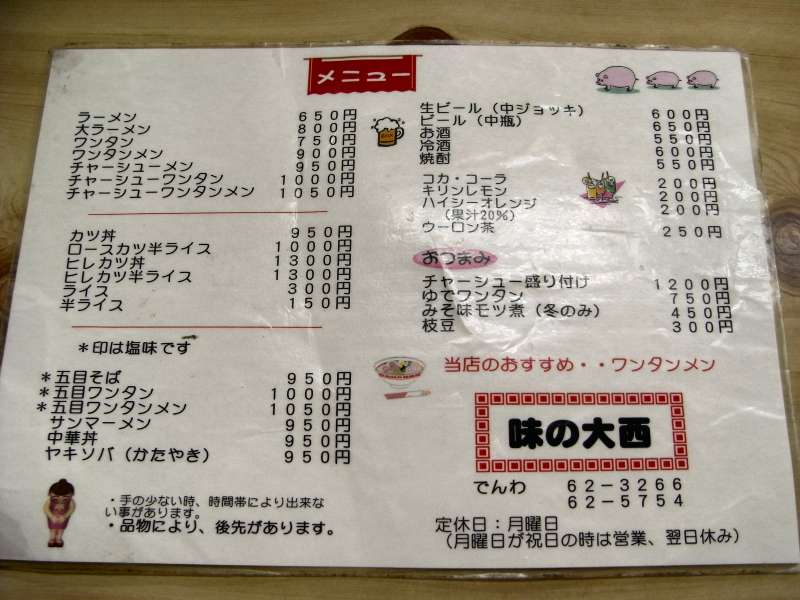 メニュー
ラーメン 650円
大ラーメン 800円
ワンタン 750円
ワンタンメン 900円
チャーシューメン 950円
チャーシューワンタン 1000円
チャーシューワンタンメン 1050円
カツ丼 950円
ロースカツ半ライス 1000円
ヒレカツ丼 1300円
ヒレカツ半ライス 1300円
ライス 300円
半ライス 150円
＊印は塩味です
＊五目そば 950円
＊五目ワンタン 1000円
＊五目ワンタンメン 1050円
サンマーメン 950円
中華丼 950円
ヤキソバ（かたやき） 950円
・手の少ない時、時間帯により出来な
い事があります。
・品物により、後先があります。
生ビール（中ジョッキ） 600円
ビール（中瓶） 650円
お酒 550円
冷酒 600円
焼酎 550円
コカ・コーラ 200円
キリンレモン 200円
ハイシーオレンジ 200円
（果汁20%）
ウーロン茶 250円
おつまみ
チャーシュー盛り付け 1200円
ゆでワンタン 750円
みそ味モツ煮（冬のみ） 450円
枝豆 300円
当店のおすすめ・・ワンタンメン
味の大西
でんわ 62－3266
62－5754
定休日：月曜日
（月曜日が祝日の時は営業、翌日休み）